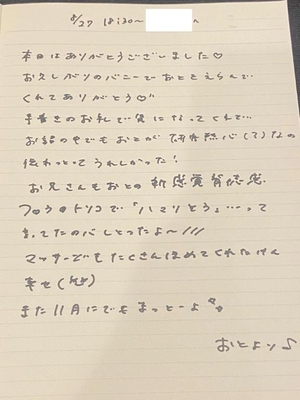 8/27 18:30〜 へ
本日はありがとうございました♡
お久しぶりのバニーでおとをえらんで
くれてありがとう♡"
手書きのお礼で気になってくれて…
お話の中でもおとが研究熱心(?)なの
伝わっとってうれしかった!
お兄さんもおとの新感覚背徳感
フロウのトリコで「ハマりそう…」って
言ってたのバレとったよ〜///
マッサージもたくさんほめてくれたけん
幸せ
また11月にでもまっとーよ
おとより